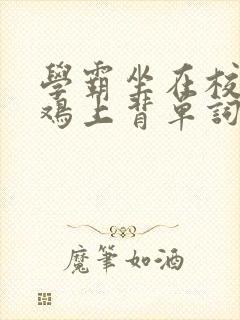 學霸坐在校
鴉上背單詞
魔筆如酒